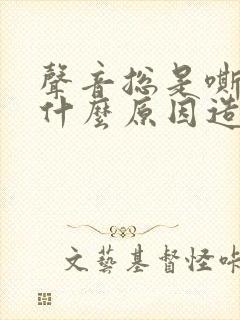 聲音總是嘶
什麼原因造
文藝基督怪咔